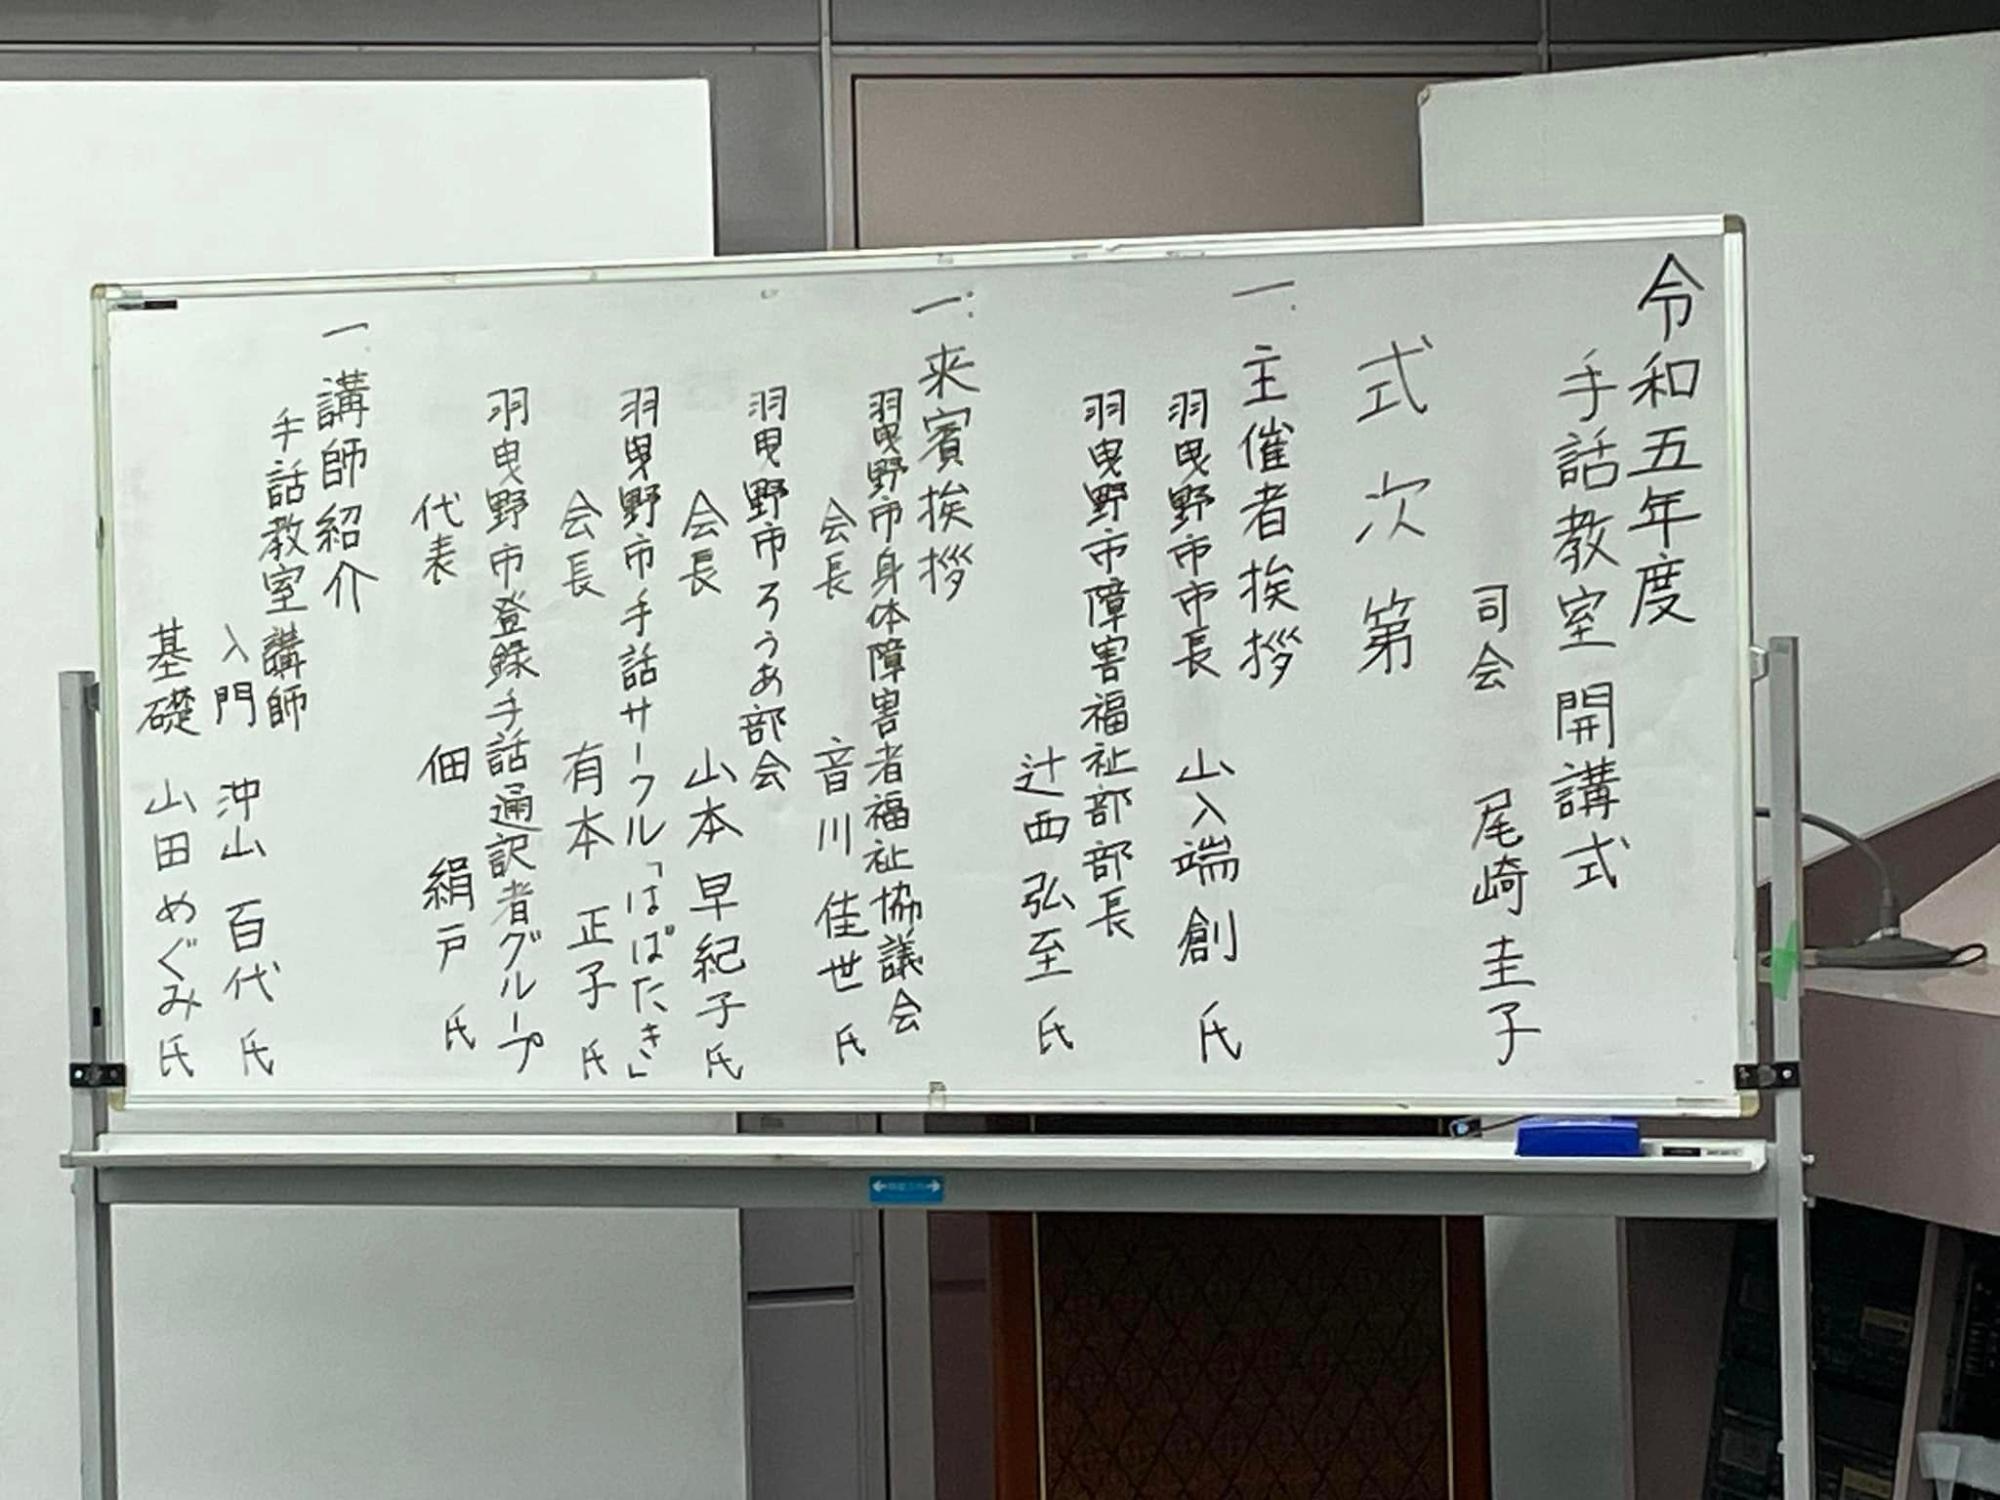 令和五年度
手話教室 開講式
司会 尾崎 圭子
式次第
一. 主催者挨拶
羽曳野市市長 山入端 創 氏
羽曳野市障害福祉部部長
辻西 弘至 氏
一. 来賓挨拶
羽曳野市身体障害者福祉協議会
会長 音川 佳世 氏
羽曳野市ろうあ部会
会長 山本 早紀子 氏
羽曳野市手話サークル「はばたき」
会長 有本 正子 氏
羽曳野市登録手話通訳者グループ
代表 佃 絹戸 氏
一. 講師紹介
手話教室講師
入門 沖山 百代 氏
基礎 山田 めぐみ 氏